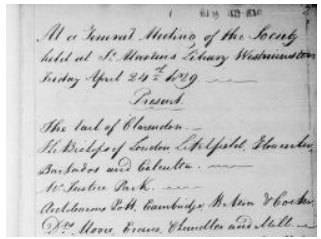 At a General Meeting of the Society
held at St. Martins Library Westminster
Friday April 24th 1829
Present
The Earl of Clarendon
The Bishops of London Litchfield, Gloucester,
Barbados and Calcutta
Mr Justice Park.
Archdeacons Pott, Cambridge,
Drs Moore, Evans, Chandler and Mill